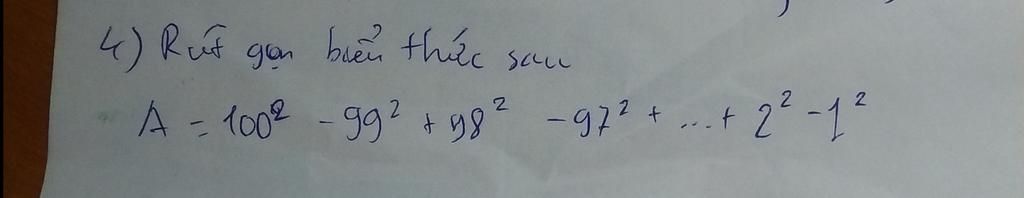 4) Rút gọn biểu thức sau
A = 100² - 99² + 98² - 97² + ... + 2² - 1²